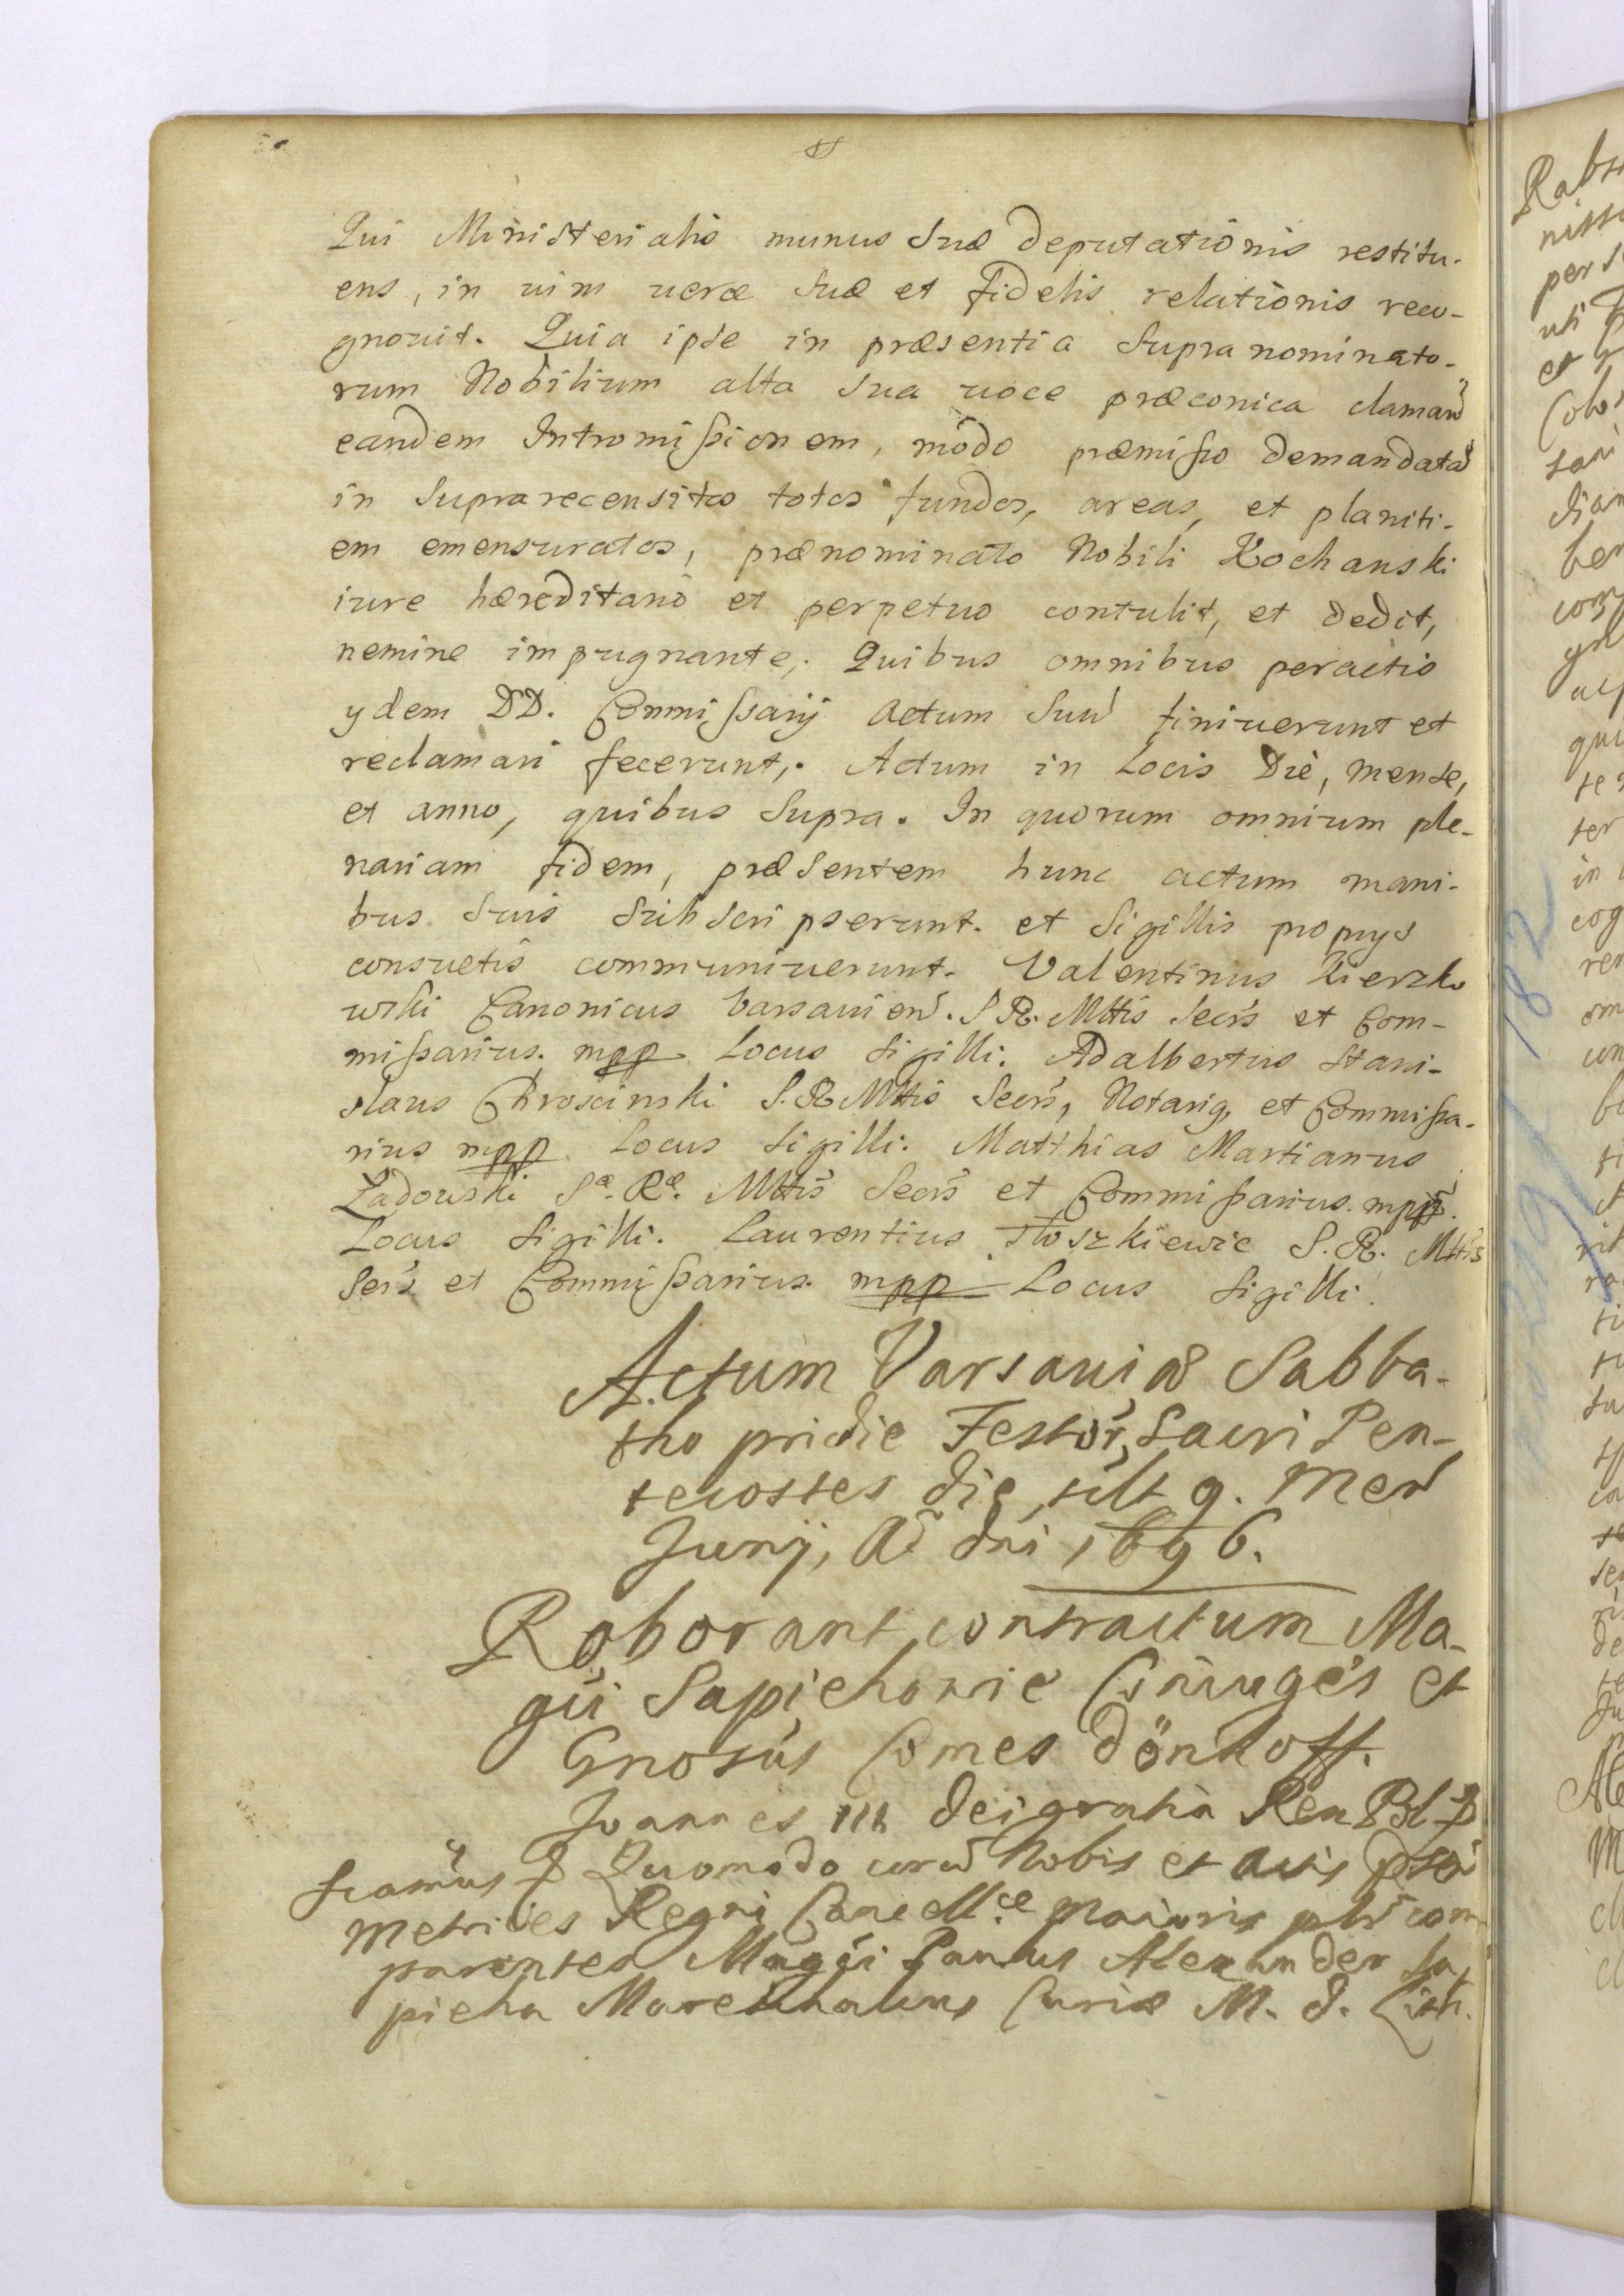 Qui Ministerialis munus suæ deputationis restitu-
ens, in uim ueræ suæ et fidelis relationis reco-
gnouit. Quia ipse in præsentia supra nominato-
rum Nobilium alta sua uoce præconica claman̄
eandem Intromissionem, modo præmisso demandatā
in supra recensitos totos fundos, areas, et planiti-
em emensuratos, prænominato Nobili Kochanski
iure hæreditario et perpetuo contulit, et dedit,
nemine impugnante; Quibus omnibus peractis
ydem DD. Commissarij actum suū finiuerunt et
reclamari fecerunt,. Actum in Locis Die, mense,
et anno, quibus supra. In quorum omnium ple-
nariam fidem, præsentem hunc actum mani-
bus suis subscripserunt. et sigillis proprys
consuetis communiuerunt. Valentinus Kierzko
wski Canonicus Varsauien̄. S R. Mttis Secr̄s et Com-
missarius. mpp Locus Sigilli. Adalbertus Stani-
slaus Chroscinski S. R Mttis Secr̄s, Notariq, et Commissa-
rius mpp Locus Sigilli. Matthias Martianus
Ladowski Sæ. Ræ. Mttis Secr̄s et Commissarius. mpp.
Locus Sigilli. Laurentius S. R. Mttis
Secr̄s et Commissarius. mpp Locus Sigilli.
Actum Varsauiæ Sabba-
tho pridie Festor̄, Sacri Pen-
tecostes die 9. Men̄
Junij, Aō dnī 1696.
Roborant contractum Ma-
gci Sapiehowie Coniuges et
Gnosus Comes Dönhoff.
Joannes III Dei gratia Rex Pol
Quomodo corā Nobis et actis
Metrices Regni Cancellæ Maioris com-
parentes Magci Alexander Sa
pieha Marchalcus Curiæ M. D. Lith.